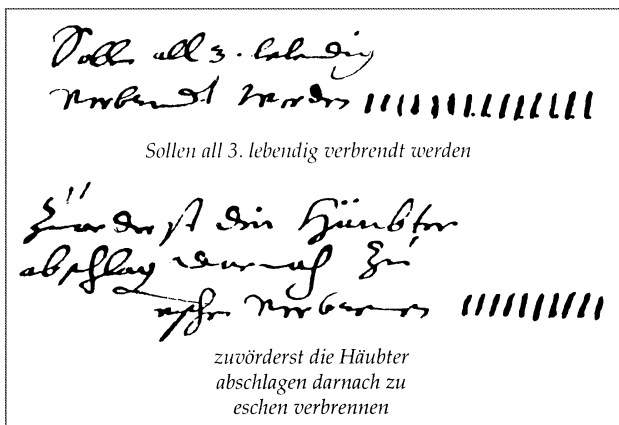 Sollen all 3. lebendig
verbrendt werden
Sollen all 3. lebendig verbrendt werden
zuvörderst die Häubter
abschlagen darnach zu
eschen verbrennen
zuvörderst die Häubter
abschlagen darnach zu
eschen verbrennen